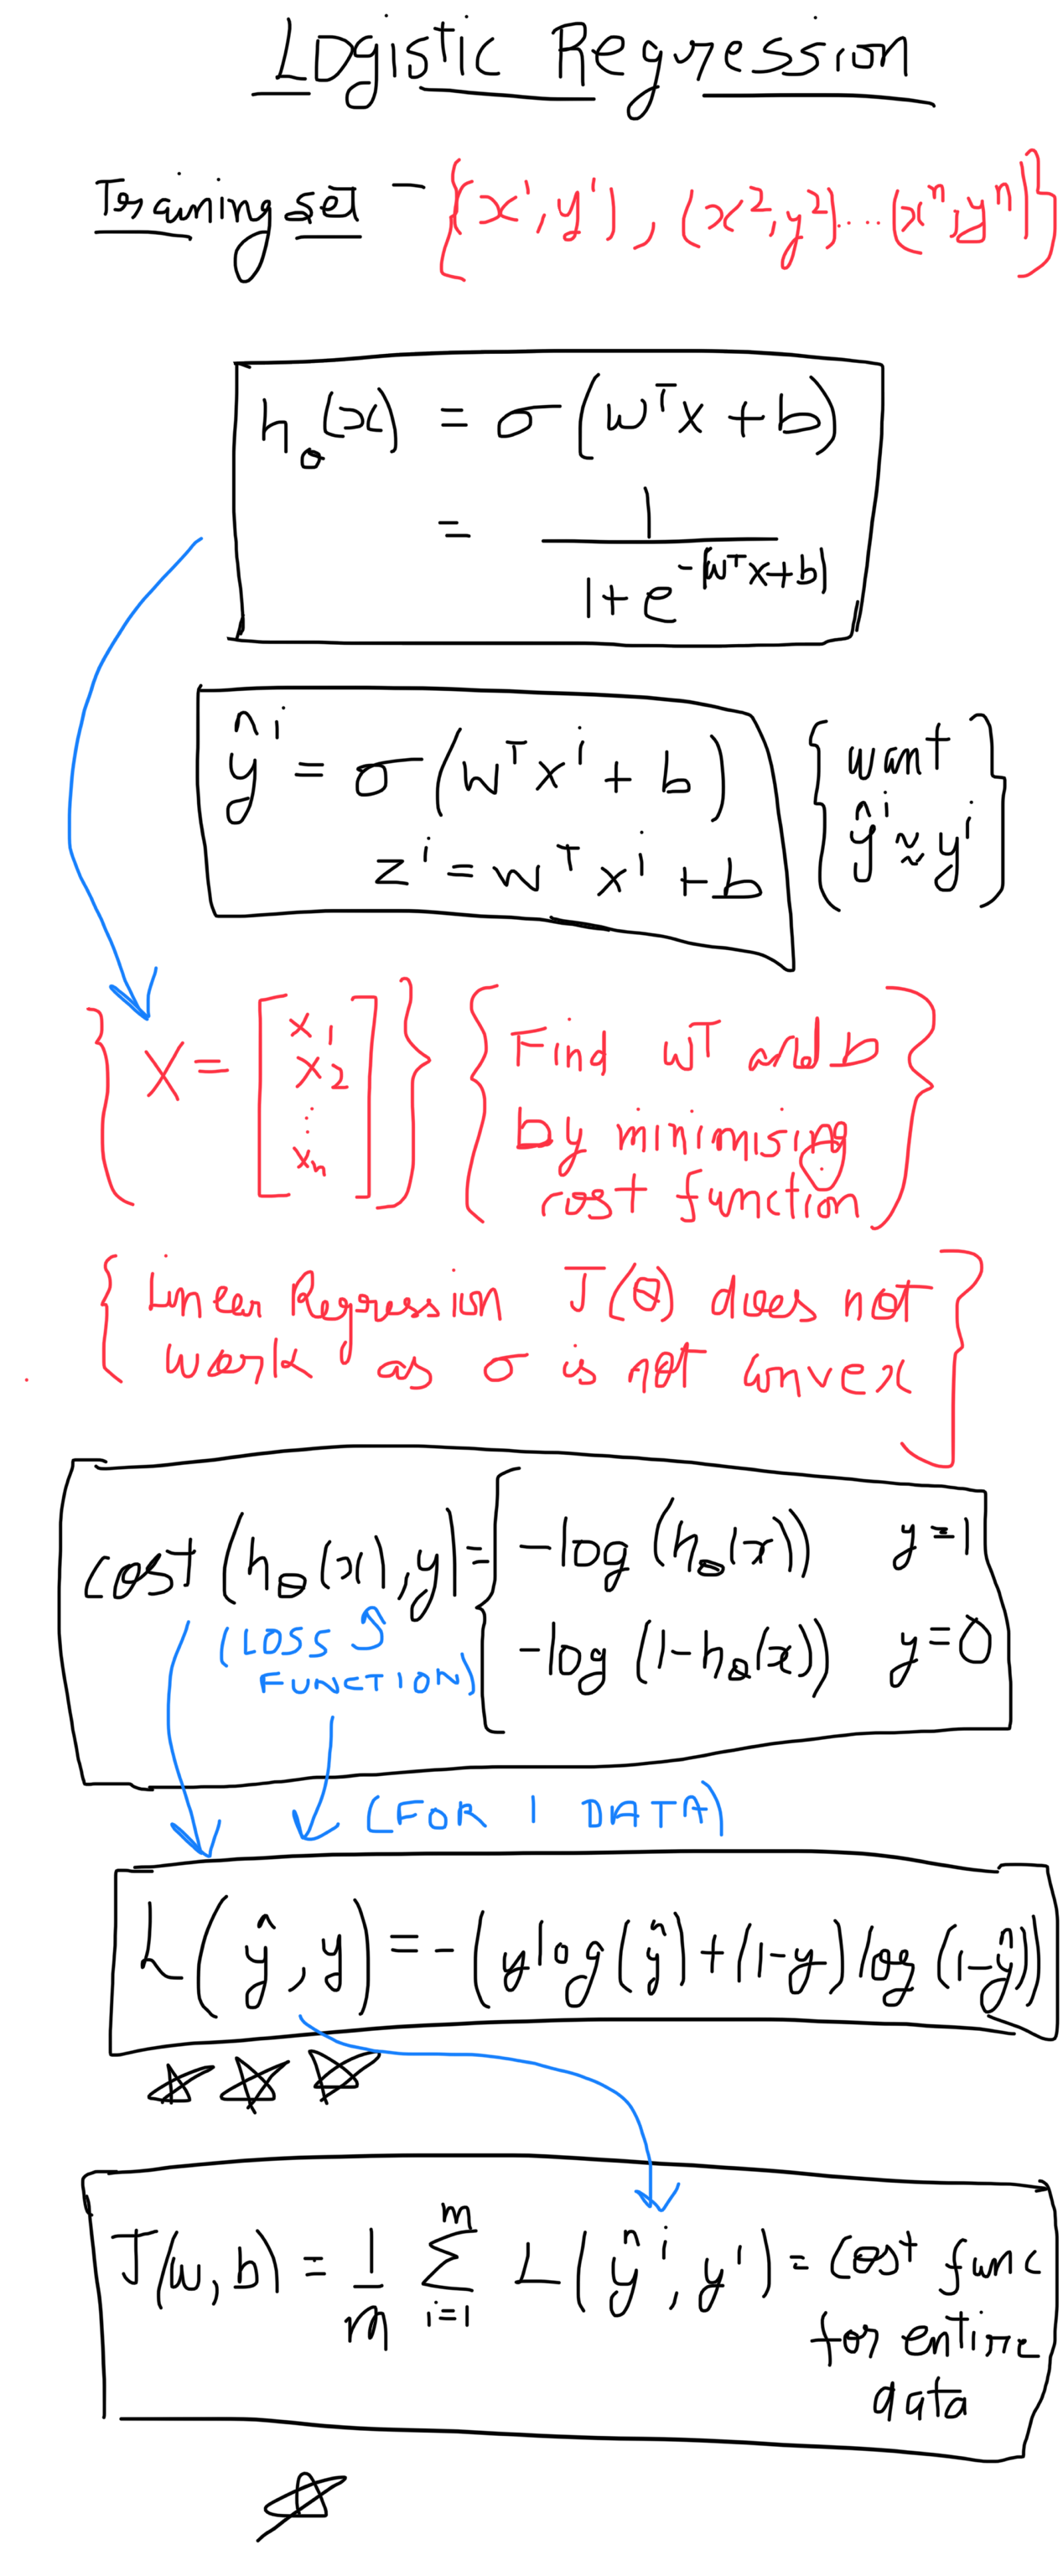 Logistic Regression
Training set - {(x¹, y¹), (x², y²)...(xⁿ, yⁿ)}
h_θ(x) = σ(wᵀx + b)
= 1 / (1 + e^-(wᵀx+b))
ŷⁱ = σ(wᵀxⁱ + b)
zⁱ = wᵀxⁱ + b
{want
ŷⁱ ≈ yⁱ}
{X = [x₁ x₂ ⋮ xₙ]}
{Find wᵀ and b
by minimising
cost function}
{Linear Regression J(θ) does not
work as σ is not convex}
cost(h_θ(x), y) = { -log(h_θ(x)) y=1
-log(1-h_θ(x)) y=0
(LOSS
FUNCTION)
(FOR 1 DATA)
L(ŷ, y) = -(y log(ŷ) + (1-y) log(1-ŷ))
J(w, b) = 1/m Σ_{i=1}^{m} L(ŷⁱ, yⁱ) = cost func
for entire
data